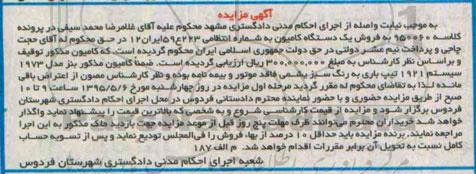 آگهی مزایده
به موجب نیابت واصله از اجرای احکام مدنی دادگستری مشهد محکوم علیه آقای غلامرضا محمد سیفی در پرونده
کلاسه ۹۵۰۰۶۰ به فروش یک دستگاه کامیون به شماره انتظامی ۲۲۳ع۵۹ایران۱۲ در حق محکوم له آقای حجت
چاجی و پرداخت نیم عشر دولتی در حق دولت جمهوری اسلامی ایران محکوم گردیده است. که کامیون مذکور توقیف
و براساس نظر کارشناس به مبلغ ۳۰۰/۰۰۰/۰۰۰ ریال ارزیابی گردیده است. ضمناً کامیون مذکور بنز مدل ۱۹۷۳
سیستم ۱۹۲۱ تیپ باری به رنگ سبز یشمی فاقد موتور و بیمه نامه بوده و نظر کارشناس مصون از اعتراض باقی
مانده لذا به تقاضای محکوم له مقرر گردید مرحله اول مزایده در روز چهارشنبه مورخ ۱۳۹۵/۵/۶ ساعت ۹ تا ۱۰
صبح از طریق مزایده حضوری و با حضور نماینده محترم دادستانی فردوس در محل اجرای احکام دادگستری شهرستان
فردوس برگزار شود و مزایده از قیمت کارشناسی شروع و به شخصی که بالاترین قیمت را پیشنهاد نماید واگذار
خواهد شد خریداران محترم می‌توانند ظرف مهلت پنج روز قبل از موعد مزایده جهت بازدید ملک مذکور به این اجرا
مراجعه نمایند. برنده مزایده باید حداقل ۱۰ درصد از بها، فروش را فی‌المجلس تودیع نماید و پس از تسویه حساب
کامل نسبت به تحویل آن برابر مقررات اقدام خواهد شد. م الف ۱۸۷
شعبه اجرای احکام مدنی دادگستری شهرستان فردوس